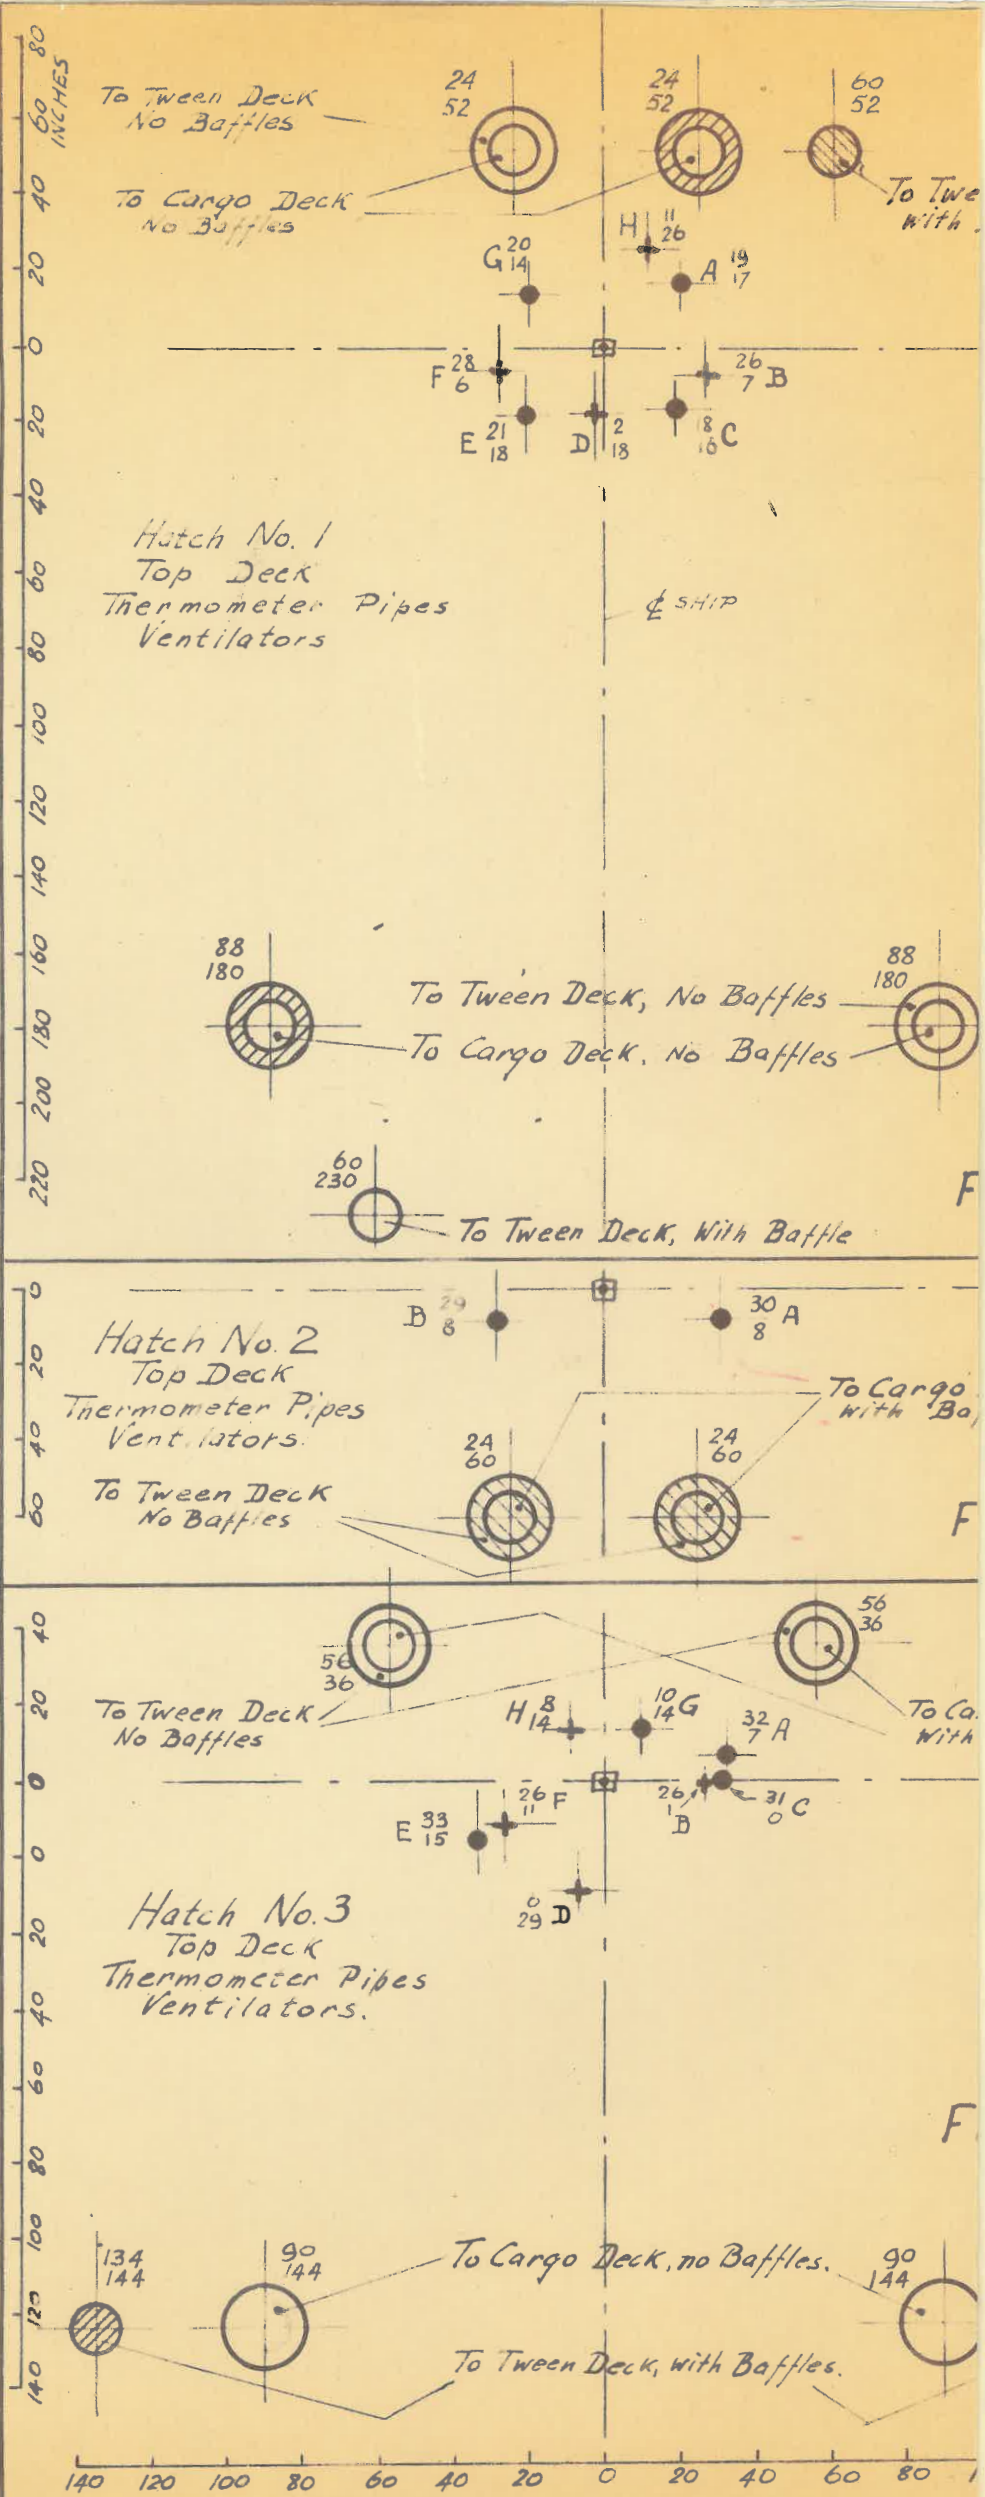 80
60
INCHES
40
20
0
20
40
60
80
100
120
140
160
180
200
220
To Tween Deck
No Baffles
24
52
24
52
60
52
To Cargo Deck
No Baffles
To Twe
with
H 11
26
G 20
14
A 19
17
F 28
6
26
7 B
E 21
18
D 2
18
C
Hatch No. 1
Top Deck
Thermometer Pipes
Ventilators
℄ SHIP
88
180
88
180
To Tween Deck, No Baffles
To Cargo Deck. No Baffles
60
230
To Tween Deck, With Baffle
F
0
20
40
60
B 29
8
30 A
8
Hatch No. 2
Top Deck
Thermometer Pipes
Ventilators.
To Cargo
with Ba
24
60
24
60
To Tween Deck
No Baffles
F
40
20
0
0
20
40
60
80
100
120
140
56
36
56
36
To Tween Deck
No Baffles
H 8
14
10
14 G
32
7 A
To Ca
With
26
1
B
31
0 C
E 33
15
26
11 F
0
29 D
Hatch No. 3
Top Deck
Thermometer Pipes
Ventilators.
F
134
144
90
144
To Cargo Deck, no Baffles.
90
144
To Tween Deck, with Baffles.
140 120 100 80 60 40 20 0 20 40 60 80 1